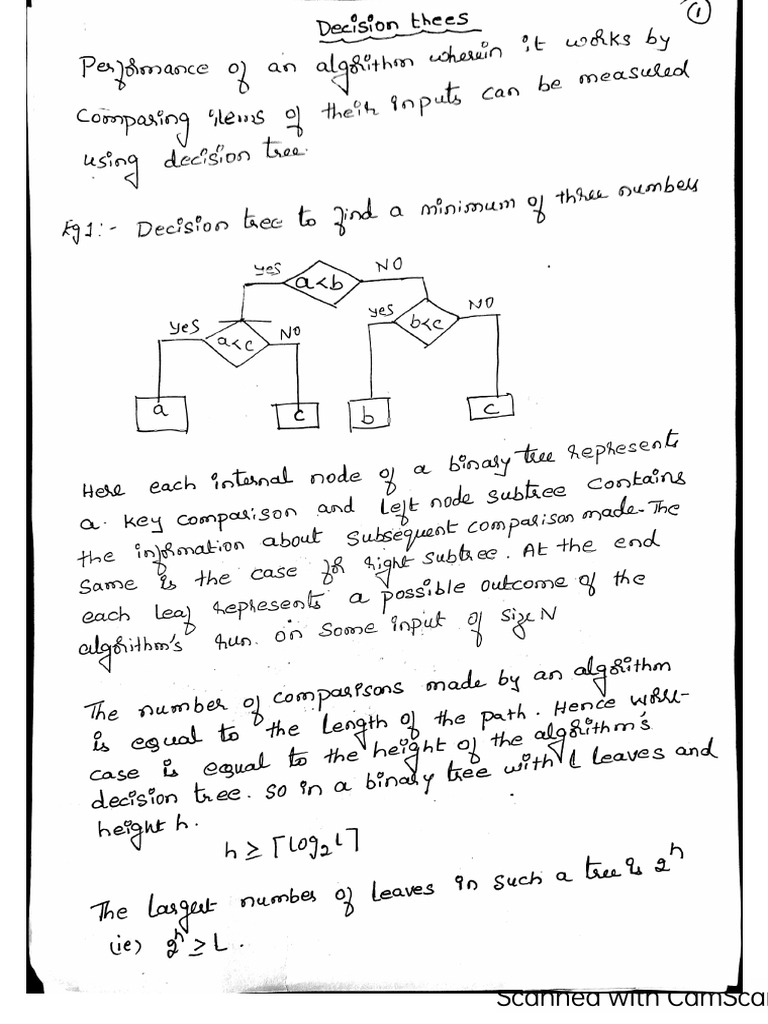 ①
Decision trees
Performance of an algorithm wherein it works by
comparing items of their inputs can be measured
using decision tree.
Eg1:- Decision tree to find a minimum of three numbers
yes a<b NO
yes a<c NO yes b<c NO
a c b c
Here each internal node of a binary tree represents
a. key comparison and left node subtree contains
the information about subsequent comparison made. The
same is the case for right subtree. At the end
each leaf represents a possible outcome of the
algorithm's run. on some input of size N
The number of comparisons made by an algorithm
is equal to the length of the path. Hence worst-
case is equal to the height of the algorithm's
decision tree. so in a binary tree with l leaves and
height h.
h ≥ ⌈log₂ l⌉
The largest number of leaves in such a tree is 2ʰ
(ie) 2ʰ ≥ L.
Scanned with CamScan